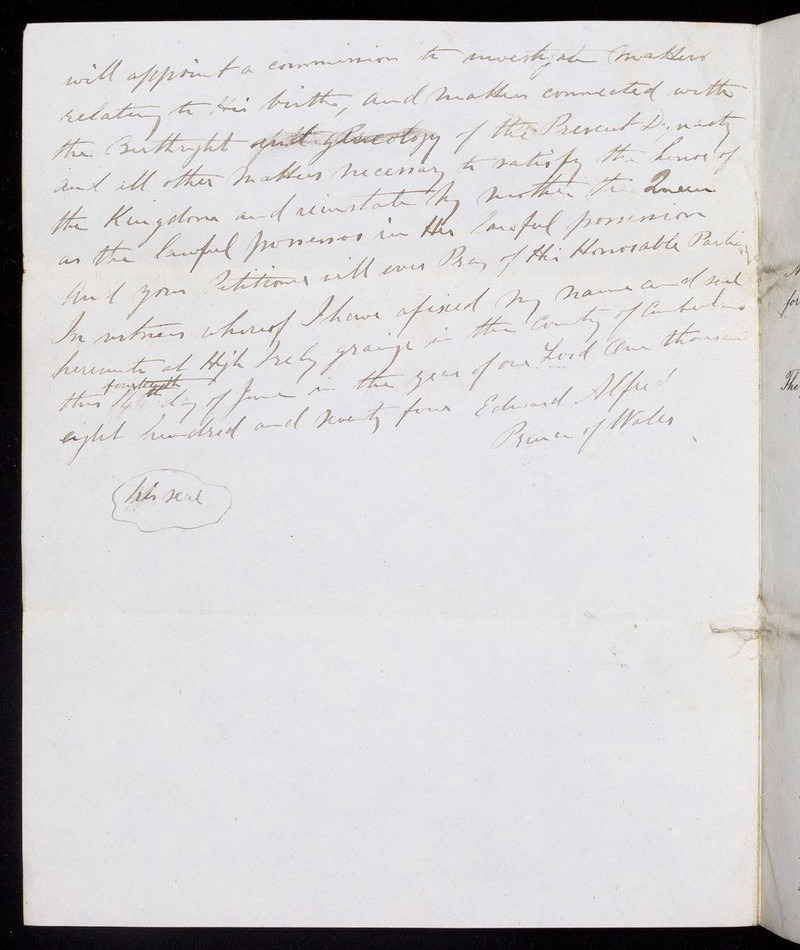 will appoint a commission to investigate matters
relating to His birth, and matters connected with
the Birthright and geneology of the Present Dynasty
and all other matters necessary to satisfy the honor of
the Kingdom and reinstate my mother the Queen
as the lawful possessor in Her lawful possession
And your Petitioner will ever Pray of His Honorable
In witness whereof I have afixed my name and seal
hereunto at High Ireby grainge in the County of
this fourteenth day of June in the year of our Lord One thousand
eight hundred and seventy four Edward Alfred
Prince of Wales
His seal